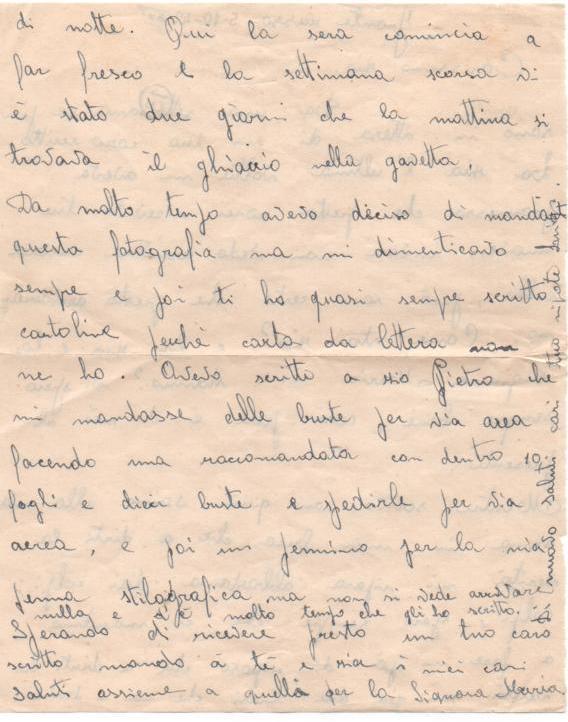 di notte. Qui la sera comincia a
far fresco e la settimana scorsa vi
è stato due giorni che la mattina si
trovava il ghiaccio nella gavetta.
Da molto tempo avevo deciso di mandarti
questa fotografia ma mi dimenticavo
sempre e poi ti ho quasi sempre scritto
cartoline perchè carta da lettera non
ne ho. Avevo scritto a zio Pietro che
mi mandasse delle buste per via aerea
facendo una raccomandata con dentro 10
fogli e dieci buste e spedirle per via
aerea, e poi un pennino per la mia
penna stilografica ma non si vede arrivare
nulla e è molto tempo che gli ho scritto.
Sperando di ricevere presto un tuo caro
scritto mando a te e zia i miei cari
saluti assieme a quella per la Signora Maria
Di nuovo saluti cari tuo nipote